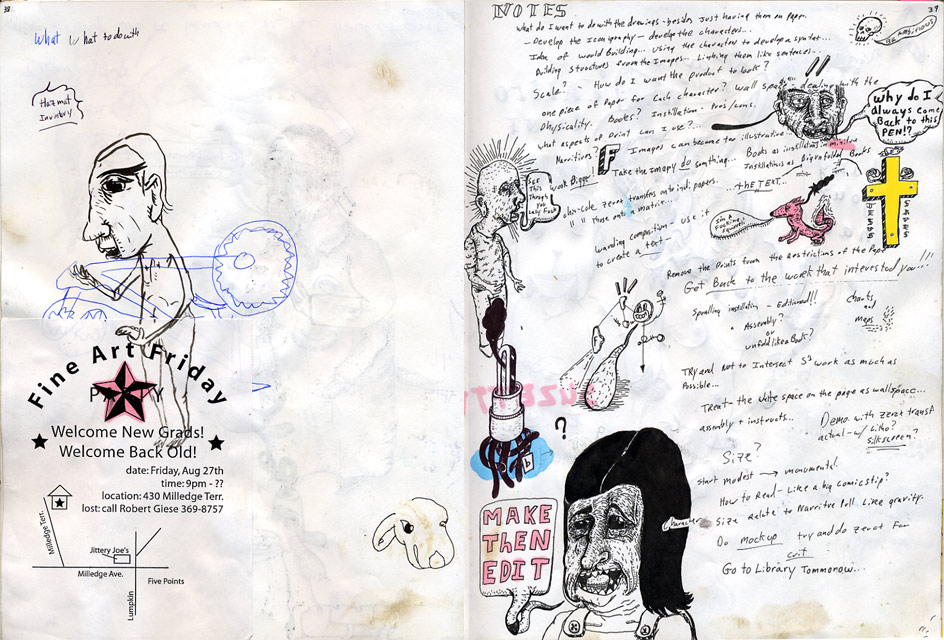 38
What what to do with
Hazmat
Inventory
Fine Art Friday
PARTY
Welcome New Grads!
Welcome Back Old!
date: Friday, Aug 27th
time: 9pm - ??
location: 430 Milledge Terr.
lost: call Robert Giese 369-8757
Milledge Terr.
Jittery Joe's
Milledge Ave.
Five Points
Lumpkin
39
NOTES
What do I want to do with the drawings - besides just having them on paper.
- Develop the Iconography - develop the characters...
Idea of world Building... Using the characters to develop a syntax...
Building structures from the Images - Linking them like sentences...
Scale? - How do I want the product to look?
one piece of Paper for Each character? Wall space dealing with the
Physicality. Books? Instillation - Pros/cons.
What aspects of Print can I use?...
Narritives? Images can become far illustrative.
BE AMBITIOUS
Why do I
always come
Back to this
PEN!?
Books as instillations in minature
Instillations as Big unfolded Books
F
Work Bigger!
Take the Imagry do somthing...
...the TEXT...
SEE
This
Through
You
Lazy Fuck
zerox transfers onto indi papers.
" " those onto a matrix...
I'm A
Fucking
Squirrel
JESUS
SAVES
wanding composition - use it
to create a text -
Remove the Prints from the Restrictions of the Page
Get Back to the work that interested you...!!!
Spralling instillation - Editioned!!
Assembly?
or
unfold like a Book?
Charts
and
Maps
Try and Not to Intersect S³ work as much as
Possible...
Treat the white space on the page as wall space...
assembly + instructs...
Demo with zerox transf.
actual - w/ Litho?
silkscreen?
?
b
Size?
start modest → monumental.
How to Read - Like a big comic strip?
Character
Size Relate to Narritve toll like gravity.
Do mockup try and do zerox for
crit
Go to Library Tommorow...
MAKE
ThEN
EDIT